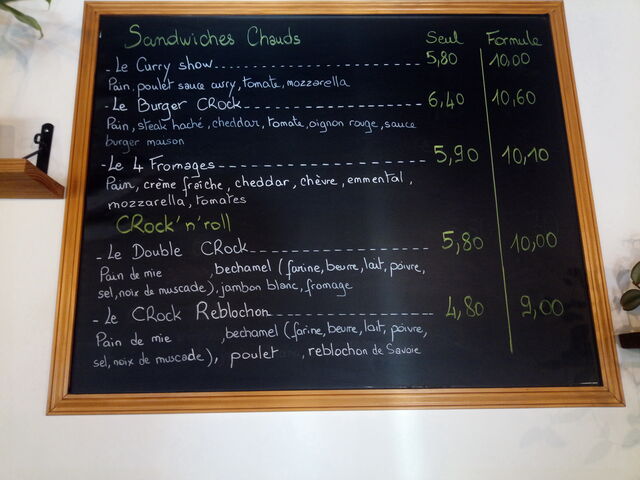 Sandwiches Chauds Seul Formule
- Le Curry show 5,80 10,00
Pain, poulet sauce curry, tomate, mozzarella
- Le Burger CRock 6,40 10,60
Pain, steak haché, cheddar, tomate, oignon rouge, sauce
burger maison
- Le 4 Fromages 5,90 10,10
Pain, crème fraîche, cheddar, chèvre, emmental,
mozzarella, tomates
CRock'n'roll
- Le Double CRock 5,80 10,00
Pain de mie , bechamel (farine, beurre, lait, poivre,
sel, noix de muscade), jambon blanc, fromage
- Le CRock Reblochon 4,80 9,00
Pain de mie , bechamel (farine, beurre, lait, poivre,
sel, noix de muscade), poulet , reblochon de Savoie